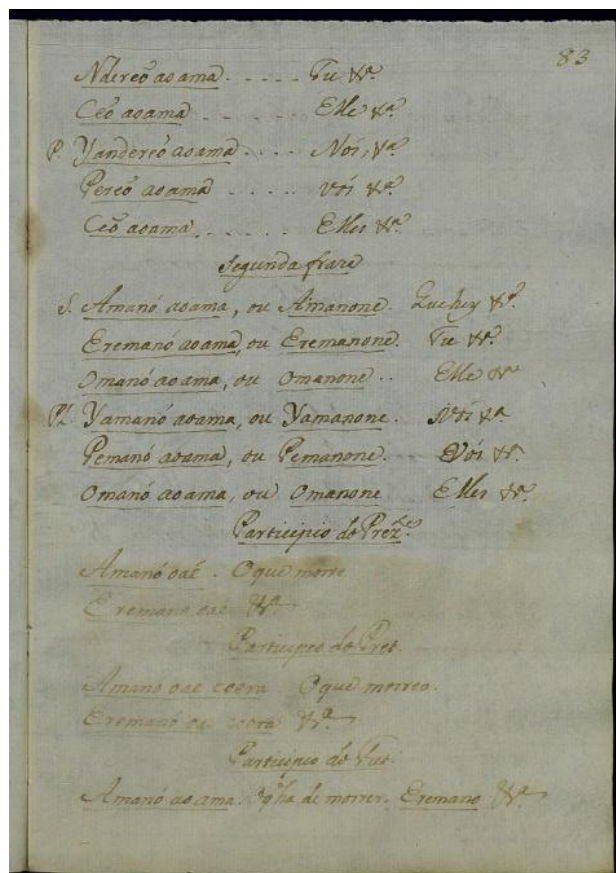 83
Ndereõ aoama. - - - - - Tu &ª.
Ceõ aoama - - - - - Elle &ª
P. Yandereõ aoama - - - - Nós, &ª.
Pereõ aoama - - - - - Vós &ª.
Ceõ aoama. - - - - - Elles &ª.
Segunda fraze
S. Amanó aoama, ou Amanone. &ª.
Eremanó aoama, ou Eremanone. Tu &ª.
Omanó aoama, ou Omanone. . Elle &ª
Pl. Yamanó aoama, ou Yamanone. Nós &ª
Pemanó aoama, ou Pemanone. Vós &ª.
Omanó aoama, ou Omanone Elles &ª.
Participio do Prez.ᵉ
Amanó oaé. O que morre
Eremano oaé &ª
Participio do Pret.
Amano oaé coera O que morreo.
Eremanó oa coera &ª
Participio do Fut.
Amanó aoama. O q̃ ha de morrer. Eremano &ª